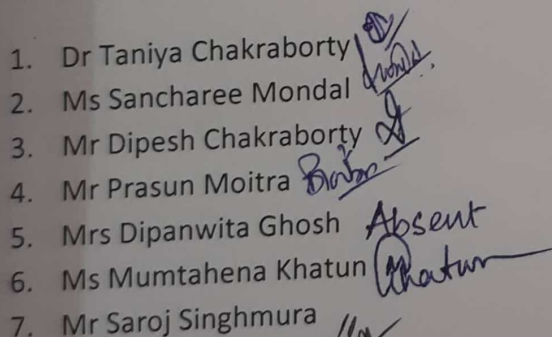 1. Dr Taniya Chakraborty
2. Ms Sancharee Mondal
3. Mr Dipesh Chakraborty
4. Mr Prasun Moitra
5. Mrs Dipanwita Ghosh Absent
6. Ms Mumtahena Khatun Khatun
7. Mr Saroj Singhmura